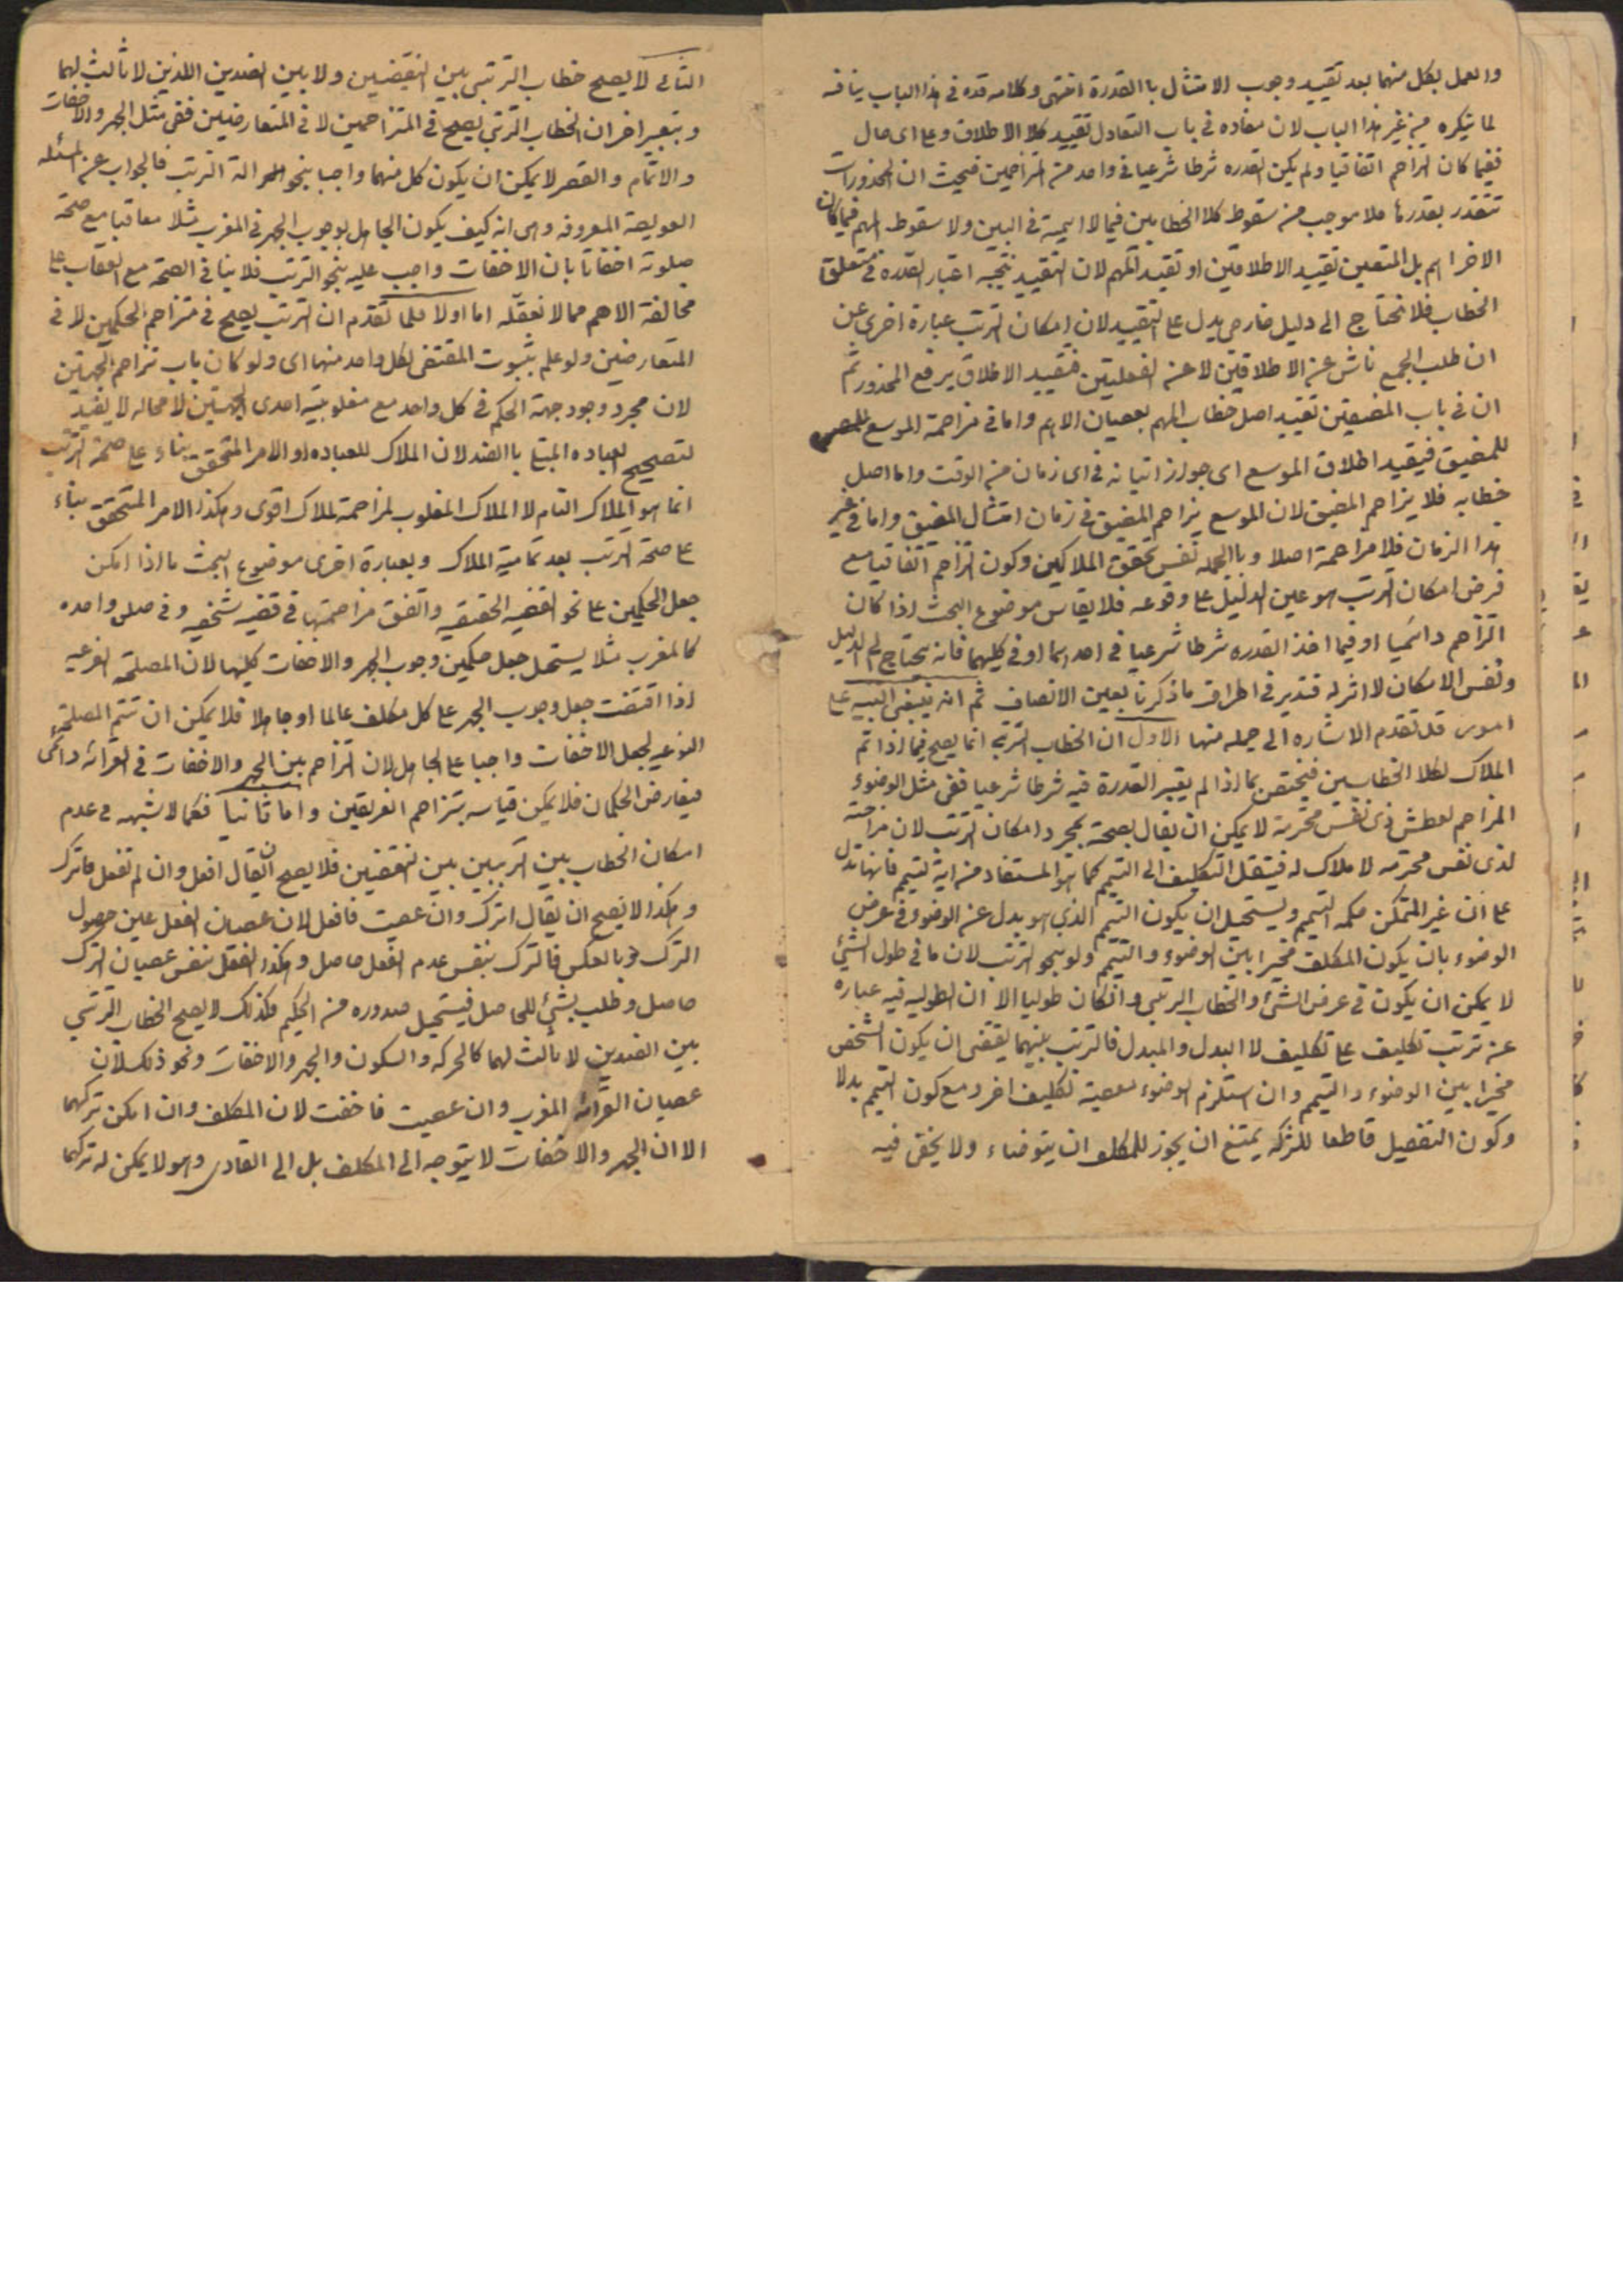 والعمل بكل منهما بعد تقييد وجوب الامتثال باالقدرة انتهى وكلامه قده فى هذا الباب ينافيه
لما يذكره فى غير هذا الباب لان مفاده فى باب التعادل تقييد كلا الاطلاق وعلى اى حال
ففيما كان التزاحم اتفاقيا ولم يكن القدره شرطا شرعيا فى واحد من المتزاحمين فحيث ان المحذورات
تتقدر بقدرها فلا موجب من سقوط كلا الخطابين فيما لا اهمية فى البين ولا سقوط المهم فيما كان
الاخر اهم بل المتعين تقييد الاطلاقين او تقييد المهم لان التقييد نتيجه اعتبار القدره فى متعلق
الخطاب فلا نحتاج الى دليل خارجى يدل على التقييد لان امكان الترتب عبارة اخرى عن
ان طلب الجمع ناش عن الاطلاقين لا عن الفعليتين فتقييد الاطلاق يرفع المحذور ثم
ان فى باب المضيقين تقييد اصل خطاب المهم بعصيان الاهم واما فى مزاحمة الموسع
للمضيق فيقيد اطلاق الموسع اى جواز اتيانه فى اى زمان من الوقت واما اصل
خطابه فلا يزاحم المضيق لان الموسع يزاحم المضيق فى زمان امتثال المضيق واما فى غير
هذا الزمان فلا مزاحمة اصلا وباالجمله نفس تحقق الملاكين وكون التزاحم اتفاقيا مع
فرض امكان الترتب هو عين الدليل على وقوعه فلا يقاس موضوع البحث اذا كان
التزاحم دائميا او فيما اخذ القدره شرطا شرعيا فى احدهما او فى كليهما فانه يحتاج الى الدليل
ونفس الامكان لا اثر له فتدبر فى اطراف ما ذكرنا بعين الانصاف ثم انه ينبغى التنبيه على
امور قد تقدم الاشاره الى جمله منها الاول ان الخطاب الترتبى انما يصح فيما اذا تم
الملاك لكلا الخطابين فيختص بما اذا لم يعتبر القدرة فيه شرطا شرعيا ففى مثل الوضوء
المزاحم لعطش ذى نفس محترمة لا يمكن ان يقال بصحته بمجرد امكان الترتب لان مزاحمته
لذى نفس محترمه لا ملاك له فينتقل التكليف الى التيمم كما هو المستفاد من اية التيمم فانها تدل
على ان غير المتمكن حكمه التيمم ويستحيل ان يكون التيمم الذى هو بدل عن الوضوء فى عرض
الوضوء بان يكون المكلف مخيرا بين الوضوء والتيمم ولو بنحو الترتب لان ما فى طول الشئ
لا يمكن ان يكون فى عرض الشئ والخطاب الترتبى وان كان طوليا الا ان الطوليه فيه عباره
عن ترتب تكليف على تكليف لا البدل والمبدل فالترتب بينهما يقتضى ان يكون الشخص
مخيرا بين الوضوء والتيمم وان استلزم الوضوء معصية تكليف اخر ومع كون التيمم بدلا
وكون التفصيل قاطعا للشركه يمتنع ان يجوز للمكلف ان يتوضاء ولا يخفى فيه
الثانى لا يصح خطاب الترتبى بين النقيضين ولا بين الضدين اللذين لا ثالث لهما
وبتعبير اخر ان الخطاب الترتبى يصح فى المتزاحمين لا فى المتعارضين ففى مثل الجهر والاخفات
والاتمام والقصر لا يمكن ان يكون كل منهما واجبا بنحو الترتب فالجواب عن المسئله
العويصة المعروفه وهى انه كيف يكون الجاهل بوجوب الجهر فى المغرب مثلا معاقبا مع صحة
صلوته اخفاتا بان الاخفات واجب عليه بنحو الترتب فلا ينافى الصحة مع العقاب على
مخالفة الاهم مما لا نعقله اما اولا فلما تقدم ان الترتب يصح فى متزاحم الحكمين لا فى
المتعارضين ولو علم بثبوت المقتضى لكل واحد منهما اى ولو كان باب تزاحم الجهتين
لان مجرد وجود جهة الحكم فى كل واحد مع مغلوبية احدى الجهتين لا محاله لا يفيد
لتصحيح العباده المبتلى باالضد لان الملاك للعباده او الامر المتحقق بناء على صحة الترتب
انما هو الملاك التام لا الملاك المغلوب لمزاحمة لملاك اقوى وهكذا الامر المتحقق بناء
على صحة الترتب بعد تمامية الملاك وبعبارة اخرى موضوع البحث ما اذا امكن
جعل الحكمين على نحو القضيه الحقيقيه واتفق مزاحمتهما فى قضيه شخصيه وفى صلوة واحده
كالمغرب مثلا يستحيل جعل حكمين وجوب الجهر والاخفات كليهما لان المصلحة النوعيه
اذا اقتضت جعل وجوب الجهر على كل مكلف عالما او جاهلا فلا يمكن ان تتم المصلحة
النوعيه لجعل الاخفات واجبا على الجاهل لان التزاحم بين الجهر والاخفات فى القرائه دائمى
فيعارض الحكمان فلا يمكن قياسه بتزاحم الغريقين واما ثانيا فكما لا شبهه فى عدم
امكان الخطاب بين النقيضين فلا يصح ان يقال افعل وان لم تفعل فاترك
وهكذا لا يصح ان يقال اترك وان عصيت فافعل لان عصيان الفعل عين حصول
الترك وبالعكس فالترك بنفس عدم الفعل حاصل وهكذا الفعل بنفس عصيان الترك
حاصل وطلب بشئ للحاصل فيستحيل صدوره من الحكيم فكذلك لا يصح الخطاب الترتبى
بين الضدين لا ثالث لهما كالحركه والسكون والجهر والاخفات ونحو ذلك لان
عصيان القرائه المغرب وان عصيت فاخفت لان المكلف وان امكن تركهما
الا ان الجهر والاخفات لا يتوجه الى المكلف بل الى القارى وهو لا يمكن له تركهما